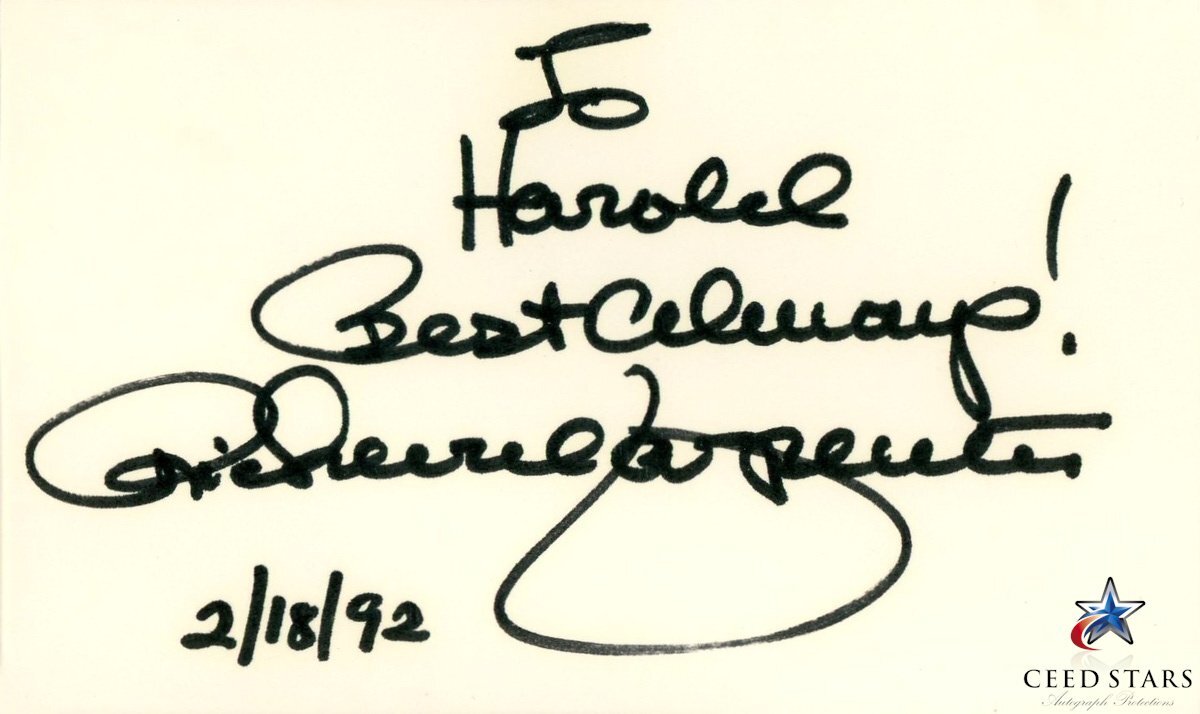 To
Harold
Best Always!
Richard Carpenter
2/18/92
CEED STARS
Autograph Protections